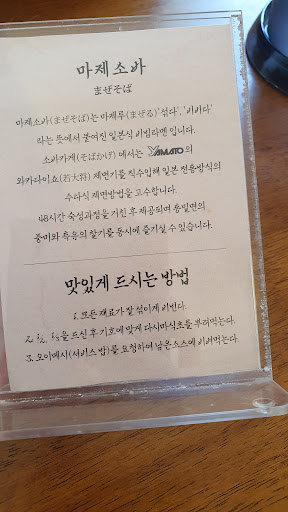 마제소바
まぜそば
마제소바(まぜそば)는 마제루(まぜる) '섞다', '비비다'
라는 뜻에서 붙여진 일본식 비빔라멘 입니다.
소바카게(そばかげ) 에서는 YAMATO의
와카다이쇼(若大将) 제면기를 직수입해 일본 전통방식의
수타식 제면방법을 고수합니다.
48시간 숙성과정을 거친 후 제공되며 통밀면의
풍미와 특유의 찰기를 동시에 즐기실 수 있습니다.
맛있게 드시는 방법
1. 모든 재료가 잘 섞이게 비빈다.
2. ½, ⅓을 드신 후 기호에 맞게 다시마식초를 뿌려먹는다.
3. 오이메시(서비스 밥)를 요청하여 남은소스에 비벼먹는다.